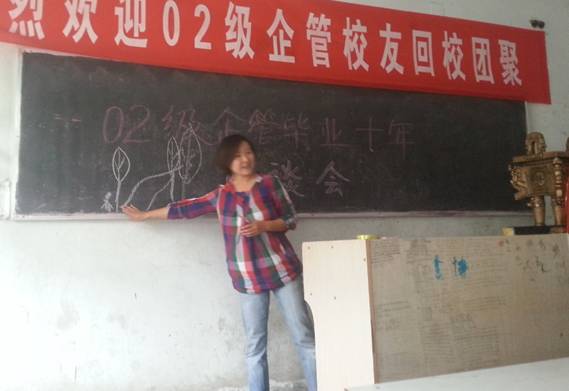 烈欢迎02级企管校友回校团聚
02级企管毕业十年
谈会